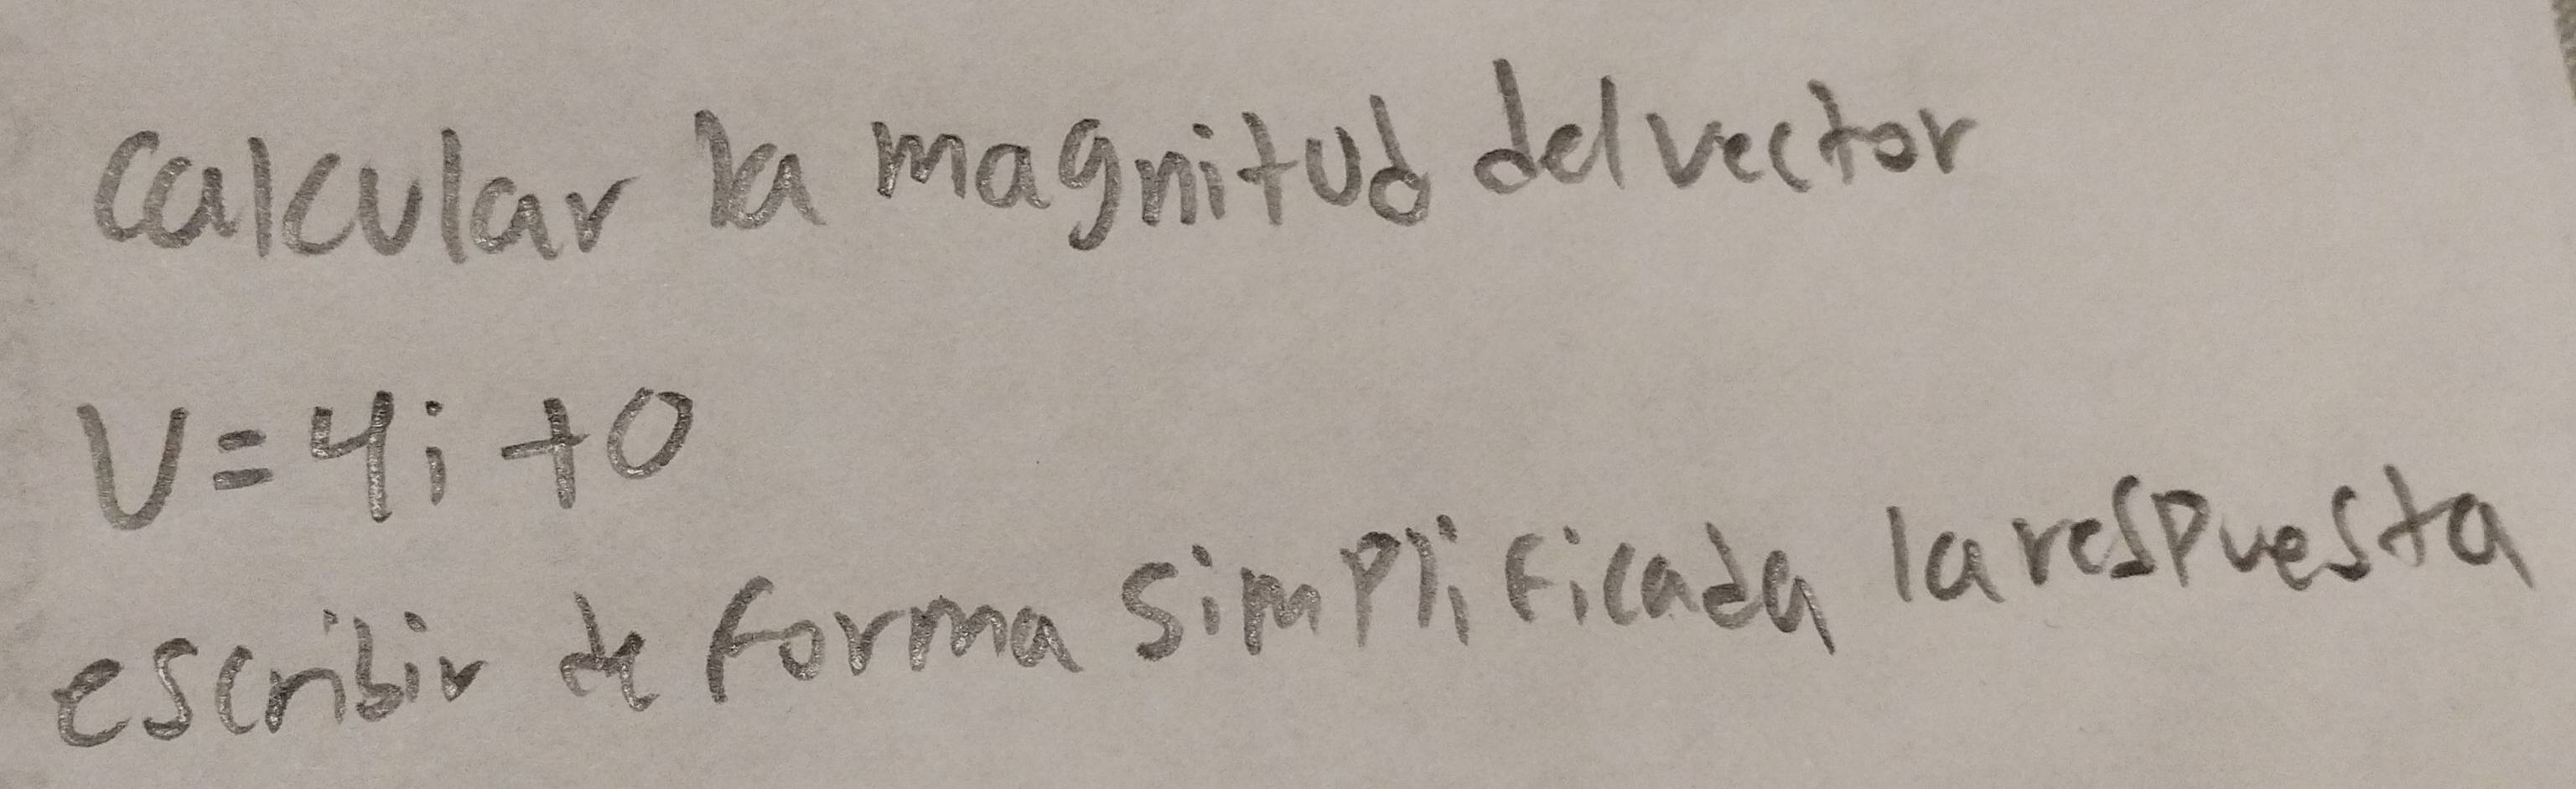 calcular la magnitud del vector
V=4i+0
escribir de forma simplificada la respuesta